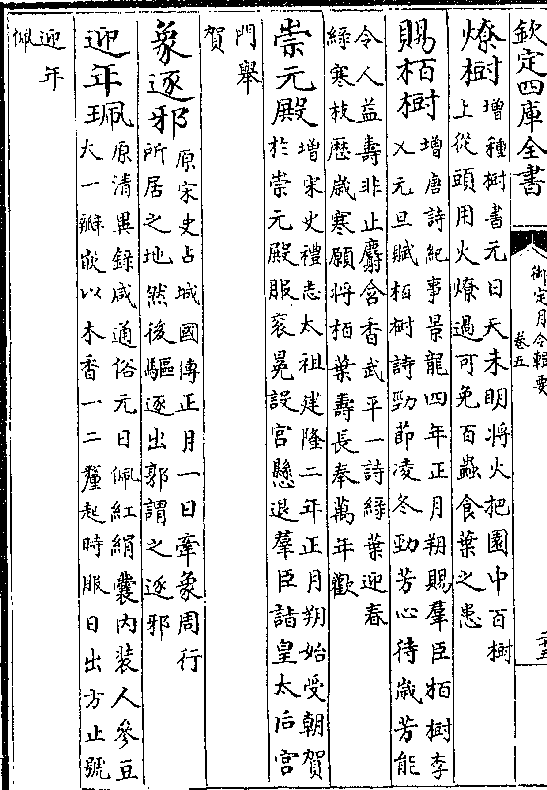 欽定四庫全書
御定月令輯要
卷五
二十五
燎樹
增種樹書元日天未明將火把園中百樹
上從頭用火燎過可免百蟲食葉之患
賜柏樹
增唐詩紀事景龍四年正月朔賜羣臣柏樹李
乂元旦賦柏樹詩勁節凌冬勁芳心待歲芳能
令人益壽非止麝含香武平一詩綠葉迎春
綠寒枝歴歲寒願將柏葉壽長奉萬年歡
崇元殿
增宋史禮志太祖建隆二年正月朔始受朝賀
於崇元殿服衮冕設宫懸退羣臣詣皇太后宫
門舉
賀
象逐邪
原宋史占城國傳正月一日牽象周行
所居之地然後驅逐出郭謂之逐邪
迎年珮
原清異錄咸通俗元日佩紅絹囊内装人參豆
大一瓣嵌以木香一二釐起時服日出方止號
迎年
佩